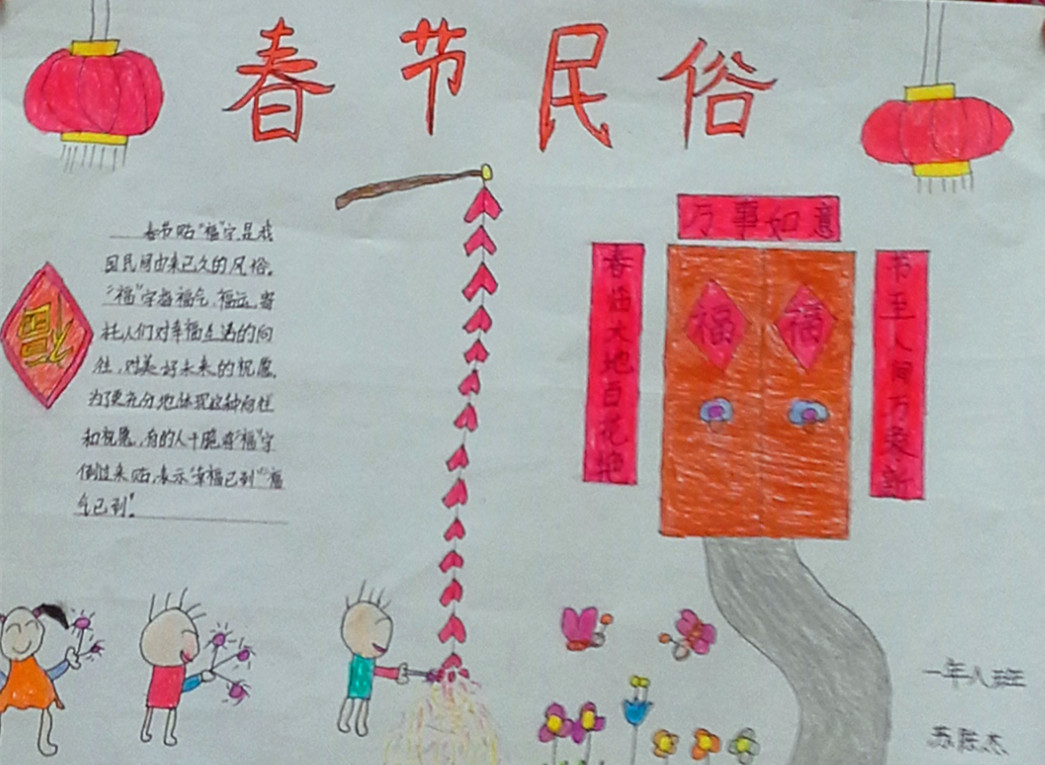 春节民俗
春节贴“福”字,是我
国民间由来已久的风俗。
“福”字指福气、福运,寄
托人们对幸福生活的向
往,对美好未来的祝愿。
为了更充分地体现这种向往
和祝愿,有的人干脆将“福”字
倒过来贴,表示“幸福已到”“福
气已到”。
万事如意
春临大地百花艳
节至人间万象新
福
福
一年八班
苏陈杰